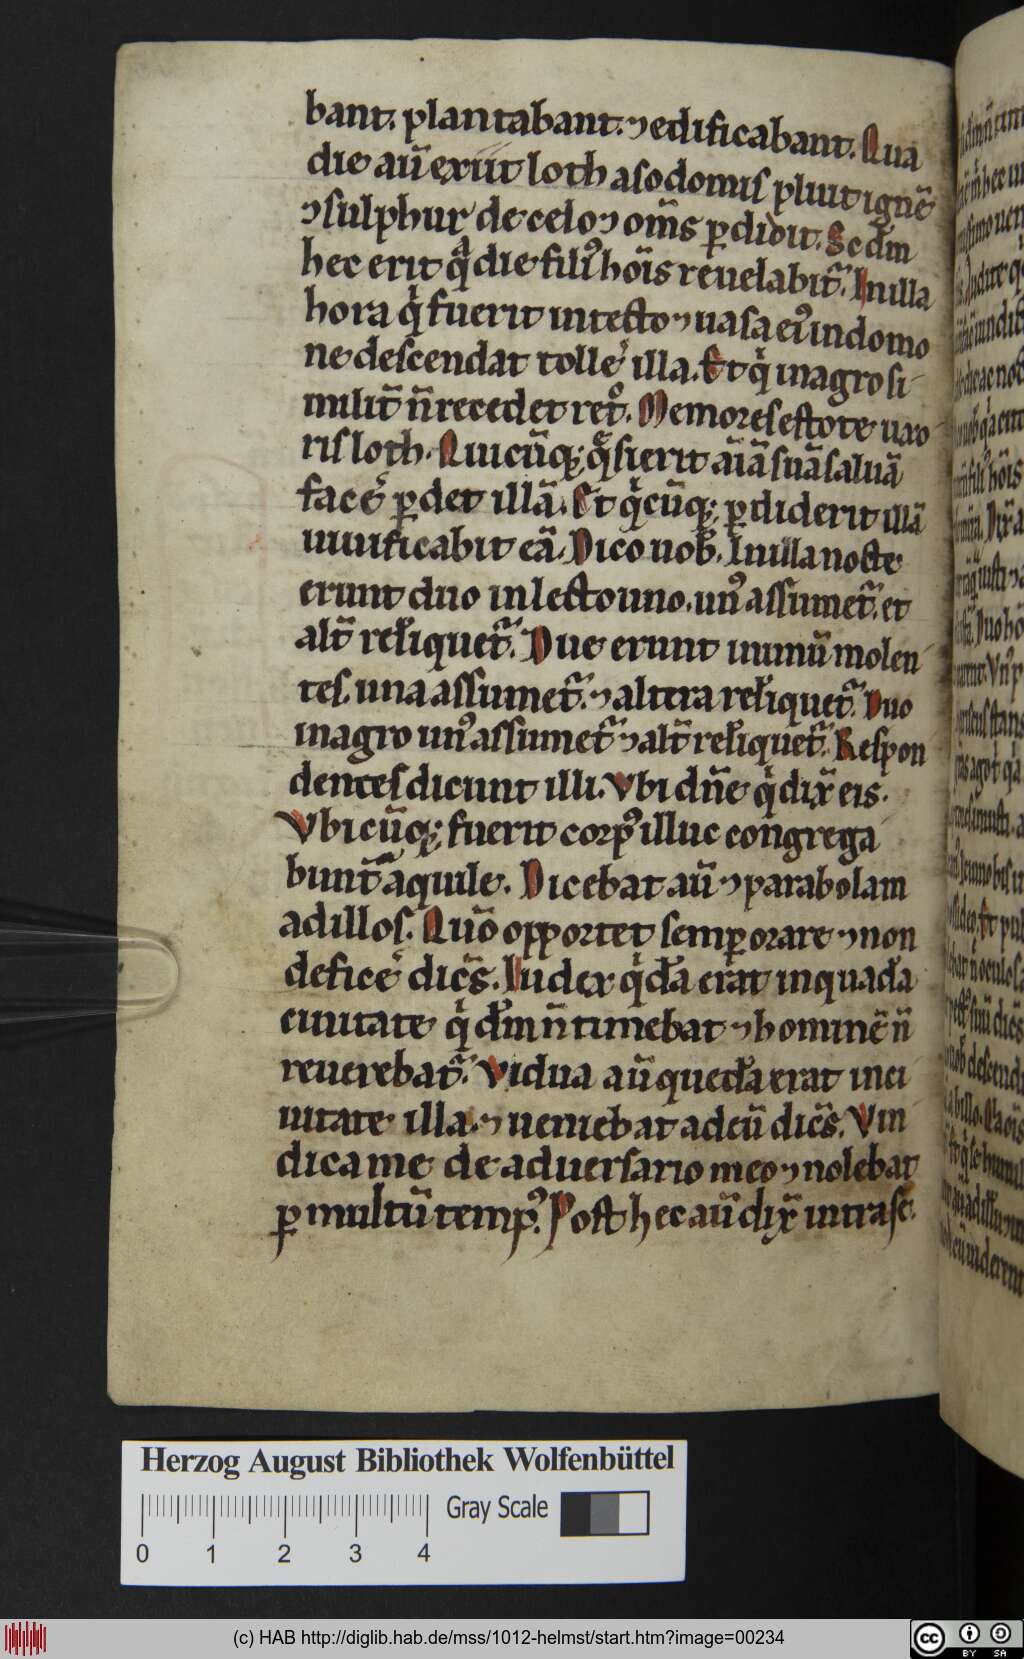 bant. plantabant. ⁊ edificabant. Qua
die aū exiit loth a sodomis pluit ignē
⁊ sulphur de celo ⁊ om̄s ꝑdidit. Scdm̄
hec erit qͣ die filiꝰ hoīs reuelabit᷑. In illa
hora qͥ fuerit in tecto ⁊ uasa eiꝰ in domo
ne descendat tolle᷑ illa. Et qͥ in agro si
milit᷑ n̄ recedet retͦ. Memores estote uxo
ris loth. Quicūqꝫ q̄sierit aīā suā saluā
face᷑ ꝑdet illā. Et qͥcūqꝫ ꝑdiderit illā
uiuificabit eā. Dico uob̄. In illa nocte
erunt duo in lecto uno. unꝰ assumet᷑. et
alt᷑ reliquet᷑. Due erunt in unū molen
tes. una assumet᷑. ⁊ altera reliquet᷑. Duo
in agro unꝰ assumet᷑ ⁊ alt᷑ reliquet᷑. Respon
dentes dicunt illi. Vbi dn̄e qͥ dix̄ eis.
Vbicūqꝫ fuerit corpꝰ illuc congrega
bunt᷑ aquile. Dicebat aū ⁊ parabolam
ad illos. Quō opportet semꝑ orare ⁊ non
defice᷑ dicēs. Iudex qͥdā erat in quadā
ciuitate qͥ dm̄ n̄ timebat ⁊ hominē n̄
reuerebat᷑. Vidua aū quedā erat in ci
uitate illa. ⁊ ueniebat ad eū dicēs. Vin
dica me de aduersario meo ⁊ nolebat
ꝑ multū tempꝰ. Post hec aū dix̄ intra se.
Herzog August Bibliothek Wolfenbüttel
Gray Scale
0 1 2 3 4
(c) HAB http://diglib.hab.de/mss/1012-helmst/start.htm?image=00234
cc BY SA